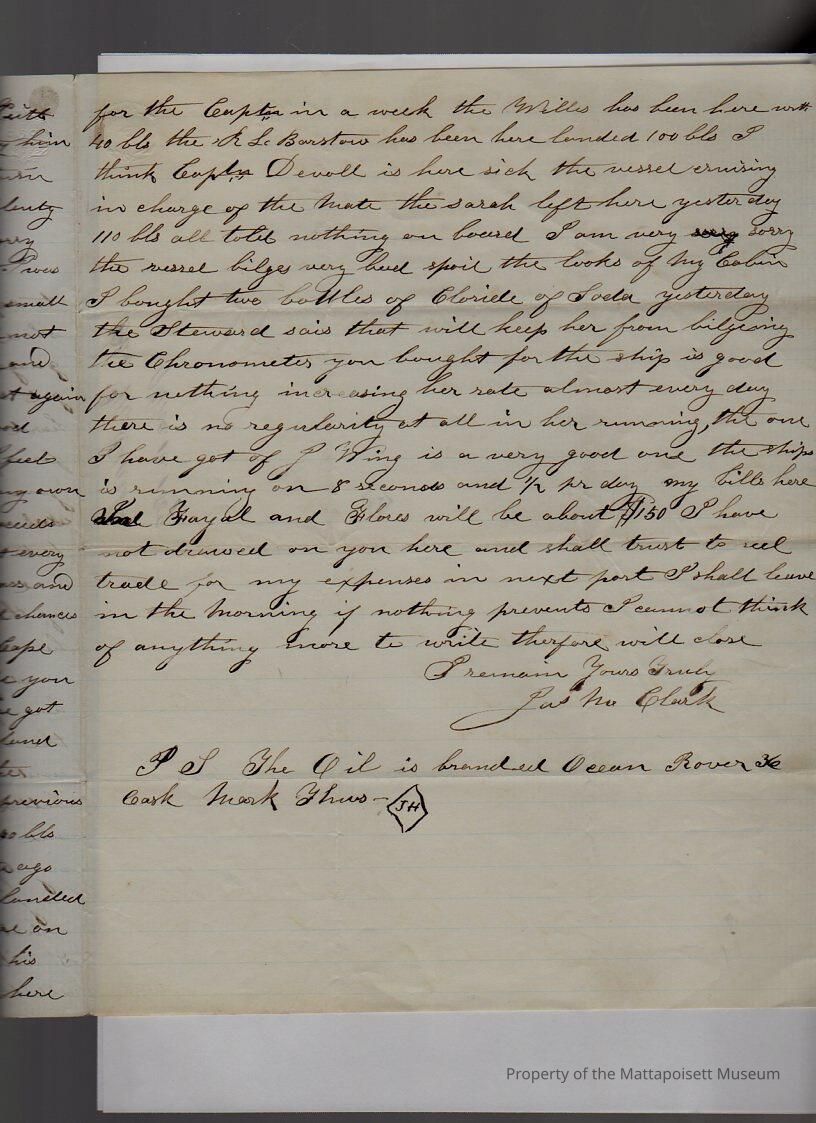 for the Captn in a week the Willis has been here with
40 bls the R L Barstow has been here landed 100 bls I
think Captn Devoll is here sick the vessel cruising
in charge of the Mate the Sarah left here yesterday
110 bls all told nothing on board I am very sorry
the vessel bilges very bad spoil the looks of my Cabin
I bought two bottles of Cloride of Soda yesterday
the Steward sais that will keep her from bilgeing
the Chronometer you bought for the ship is good
for nothing increasing her rate almost every day
there is no regularity at all in her running, the one
I have got of J Wing is a very good one the ships
is running on 8 seconds and 1/2 pr day my bills here
Fayal and Flores will be about $150 I have
not drawed on you here and shall trust to
trade for my expenses in next port I shall leave
in the morning if nothing prevents I cannot think
of anything more to write therfore will close
I remain Yours Truly
Jas M Clark
P S The Oil is branded Ocean Rover
Cask Mark Thus - JH
with
him
plenty
was
small
not
and
again
feel
my own
every
and
chances
Cape
you
got
land
previous
bls
ago
landed
on
his
here
Property of the Mattapoisett Museum